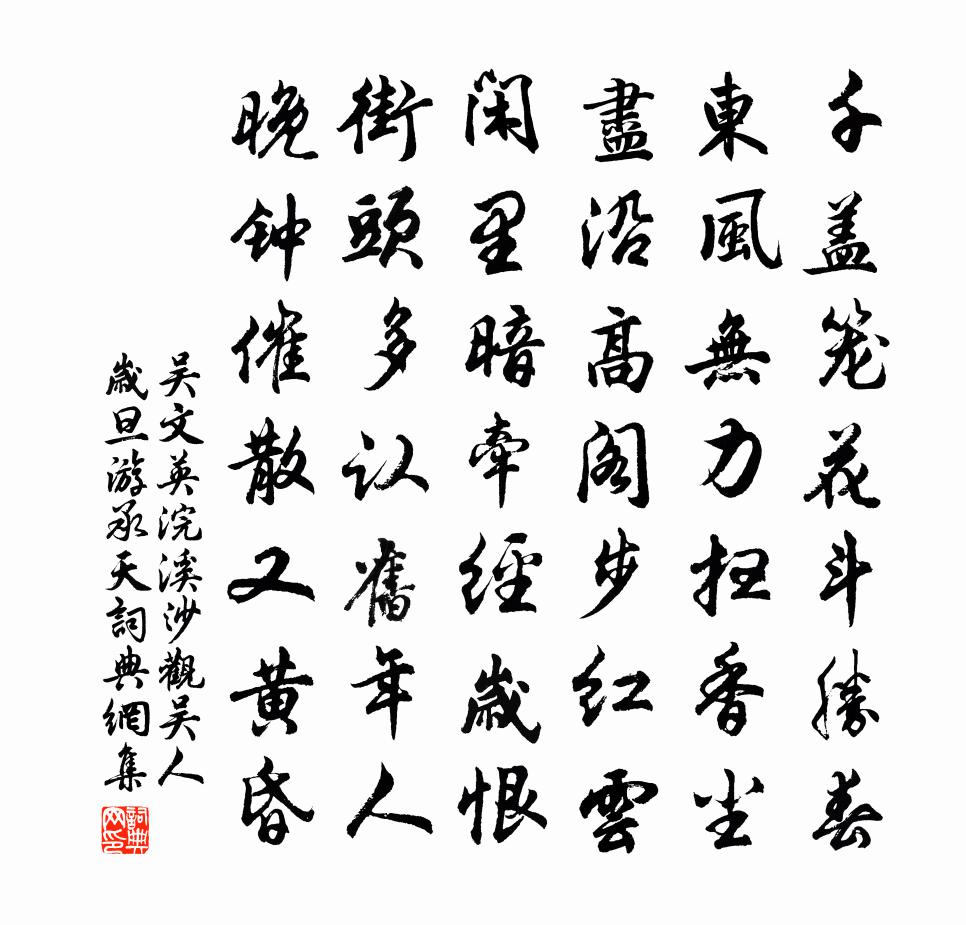 千盖笼花斗勝春
東風無力扫香尘
盡沿高阁步红雲
闲里暗牵经歲恨
街頭多认舊年人
晚钟催散又黄昏
吴文英浣溪沙觀吴人
歲旦游承天詞典網集
詞典
网印